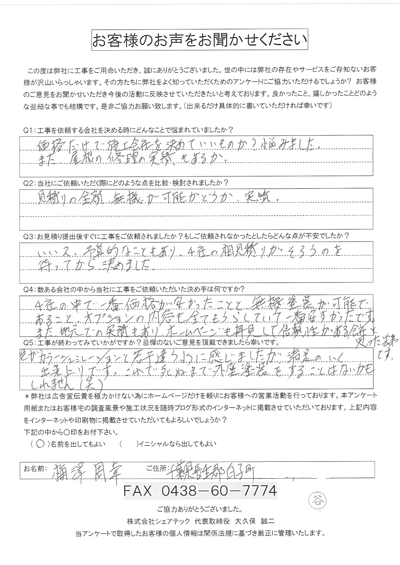 お客様のお声をお聞かせください
この度は弊社に工事をご用命いただき、誠にありがとうございました。世の中には弊社の存在やサービスをご存知ないお客
様が沢山いらっしゃいます。その方たちに弊社をよく知っていただくためのアンケートにご協力いただけるでしょうか? お客様
のご意見をお聞かせいただき今後の活動に反映させていただきたいと考えております。良かったこと、嬉しかったことどのよう
な些細な事でも結構です。是非ご協力お願い致します。(出来るだけ具体的に書いていただければ幸いです)
Q1:工事を依頼する会社を決める時にどんなことで悩まれていましたか?
価格だけで施工会社を決めていいものか?悩みました。
また屋根の修理の実績もあるか。
Q2:当社にご依頼いただく際にどのような点を比較・検討されましたか?
見積りの金額、無機が可能かどうか、実績。
Q3:お見積り提出後すぐに工事をご依頼されましたか?もしご依頼されなかったとしたらどんな点が不安でしたか?
いいえ。予算的なこともあり、4社の相見積りがそろうのを
待ってから決めました。
Q4:数ある会社の中から当社に工事をご依頼いただいた決め手は何ですか?
4社の中で一番価格が安かったことと、無機塗装が可能で
あること、オプションの内容も全てもりこんでいて一番安かったです。
また地元での実績もあり、ホームページを拝見して信頼性がある会社と
思ったからです。
Q5:工事が終わってみていかがですか?忌憚のないご意見を頂戴できましたら幸いです。
色がカラーシュミレーションと若干違うように感じましたが、満足のいく
出来上りです。これで死ぬまで外壁塗装をすることはないかも
しれません(笑)
*弊社は広告宣伝費を極力かけない為にホームページだけを頼りにお客様への営業活動を行っております。本アンケート
用紙またはお客様宅の調査風景や施工状況を随時ブログ形式のインターネットに掲載させていただいております。上記内容
をインターネットや印刷物に掲載させていただいてもよろしいでしょうか?
下記の中から〇印をお付け下さい。
(〇)名前を出してもよい ( )イニシャルなら出してもよい
お名前: ご住所: 千葉県長生郡白子町
FAX 0438-60-7774
谷
ご協力ありがとうございました。
株式会社シェアテック 代表取締役 大久保 誠二
当アンケートで取得したお客様の個人情報は関係法規に基づき厳正に管理いたします。